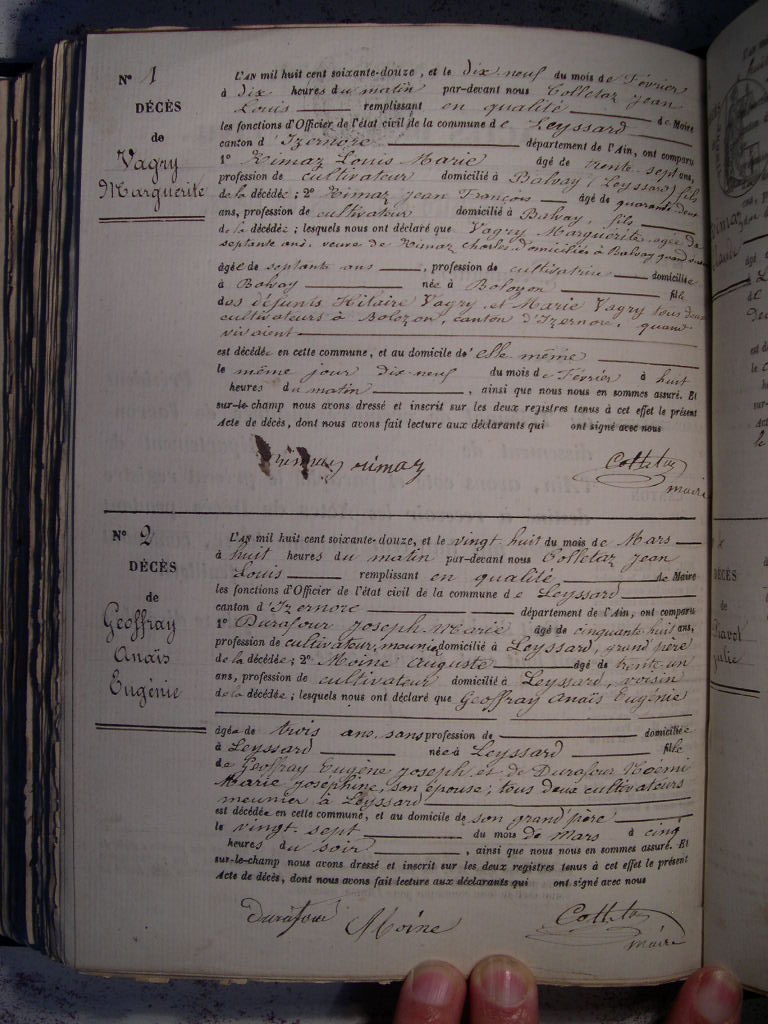 N° 1
DÉCÈS
de
Vagry
Marguerite
L'AN mil huit cent soixante-douze, et le dix neuf du mois de Février
à dix heures du matin par-devant nous Colletaz Jean
Louis remplissant en qualité de Maire
les fonctions d'Officier de l'état civil de la commune de Leyssard
canton d'Izernore département de l'Ain, ont comparu
1° Rimaz Louis Marie âgé de trente sept ans,
profession de cultivateur domicilié à Balvay (Leyssard) fils
de la décédée; 2° Rimaz Jean François âgé de quarante deux
ans, profession de cultivateur domicilié à Balvay, fils
de la décédée; lesquels nous ont déclaré que Vagry Marguerite, agée de
septante ans, veuve de Rimaz Charles domiciliés à Balvay quand
âgée de septante ans, profession de cultivatrice domiciliée
à Balvay née à Bolozon fille
des défunts Hilaire Vagry et Marie Vagry tous deux
cultivateurs à Bolozon, canton d'Izernore, quand
vivaient
est décédée en cette commune, et au domicile d'elle même
le même jour dix-neuf du mois de Février à huit
heures du matin, ainsi que nous nous en sommes assuré. Et
sur-le-champ nous avons dressé et inscrit sur les deux registres tenus à cet effet le présent
Acte de décès, dont nous avons fait lecture aux déclarants qui ont signé avec nous
rimaz Colletaz
maire
N° 2
DÉCÈS
de
Geoffray
Anaïs
Eugénie
L'AN mil huit cent soixante-douze, et le vingt huit du mois de Mars
à huit heures du matin par-devant nous Colletaz Jean
Louis remplissant en qualité de Maire
les fonctions d'Officier de l'état civil de la commune de Leyssard
canton d'Izernore département de l'Ain, ont comparu
1° Durafour Joseph-Marie âgé de cinquante huit ans,
profession de cultivateur, meunier domicilié à Leyssard, grand père
de la décédée; 2° Moine Auguste âgé de trente un
ans, profession de cultivateur domicilié à Leyssard, voisin
de la décédée; lesquels nous ont déclaré que Geoffray Anaïs Eugénie
âgée de trois ans, sans profession de domiciliée
à Leyssard née à Leyssard fille
de Geoffray Eugène Joseph et de Durafour Noémi
Marie Joséphine, son épouse; tous deux cultivateurs
meunier à Leyssard
est décédée en cette commune, et au domicile de son grand'père
le vingt sept du mois de Mars à cinq
heures du soir, ainsi que nous nous en sommes assuré. Et
sur-le-champ nous avons dressé et inscrit sur les deux registres tenus à cet effet le présent
Acte de décès, dont nous avons fait lecture aux déclarants qui ont signé avec nous
Durafour Moine Colletaz
maire